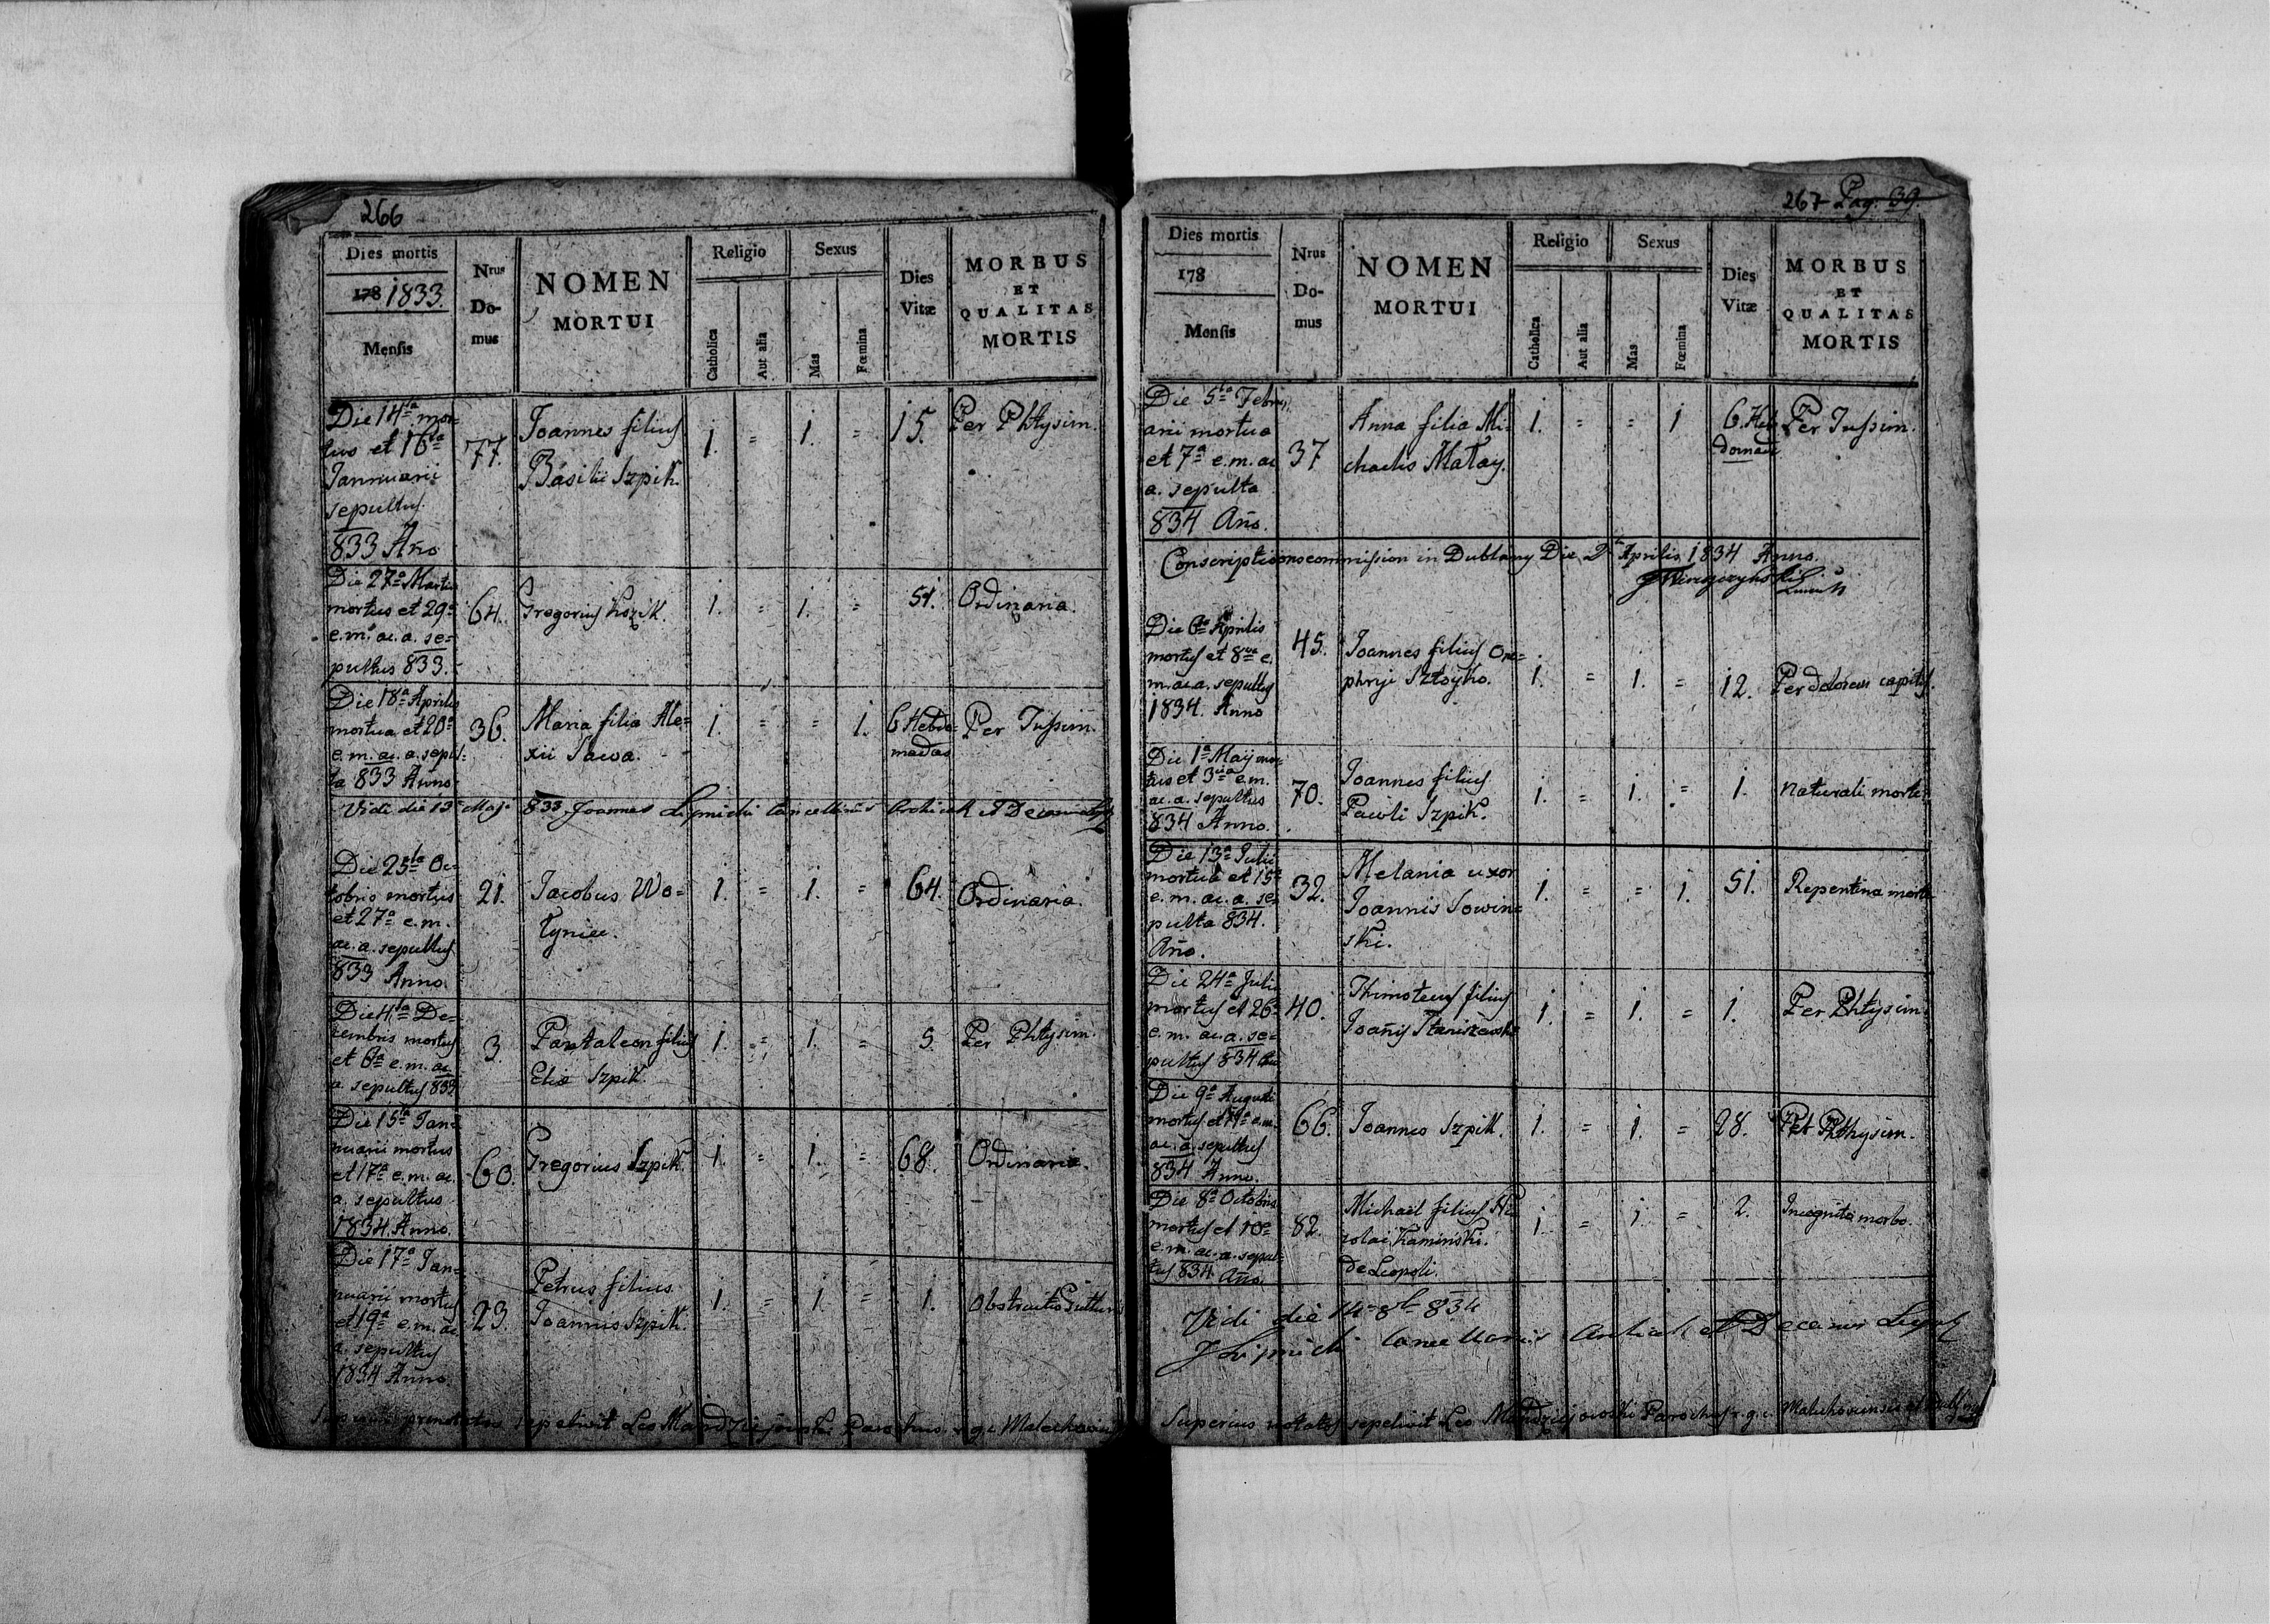 266
Dies mortis
178 1833.
Mensis
Nrus
Do-
mus
NOMEN
MORTUI
Religio
Catholica
Aut alia
Sexus
Mas
Fœmina
Dies
Vitæ
MORBUS
ET
QUALITAS
MORTIS
Die 14ta mor-
tuus et 16ta
Januuarii
sepultus
833 Ano
77.
Joannes filius
Basilii Szpik.
1. = 1. = 15. Per Phtysim.
Die 27a Martii
mortus et 29a
e.m. ac. a. se=
pultus 833.
64.
Gregorius
1. = 1. = 51. Ordinaria.
Die 18a Aprilis
mortua et 20a
e.m. ac. a. sepul=
ta 833 Anno
36.
Maria filia Ale=
xii Sawa.
1. = = 1. 6 Hebdo=
madas
Per Tussim.
Vidi die 13 Maji 833 Joannes Lipnicki Cancellarius et
Die 25ta Oc=
tobris mortus
et 27a e.m.
ac. a. sepultus
833 Anno.
21.
Jacobus Wo=
łyniec.
1. = 1. = 64. Ordinaria.
Die 4ta De=
cembris mortus
et 6ta e.m. ac
a. sepultus 833
3.
Pantaleon filius
Eliæ Szpik.
1. = 1. = 5. Per Phtysim.
Die 15ta Jan=
nuarii mortus
et 17a e.m. ac.
a. sepultus
1834 Anno.
60.
Gregorius Szpik.
1. = 1. = 68. Ordinaria.
Die 17a Jan=
nuarii mortus
et 19a e.m. ac
a. sepultus
1834 Anno.
23.
Petrus filius
Joannis Szpik.
1. = 1. = 1.
sepelivit Leo Mandziejowski Parochus r. g. c.
267 Pag. 39.
Dies mortis
178
Mensis
Nrus
Do-
mus
NOMEN
MORTUI
Religio
Catholica
Aut alia
Sexus
Mas
Fœmina
Dies
Vitæ
MORBUS
ET
QUALITAS
MORTIS
Die 5ta Febru
arii mortua
et 7a e.m. ac
a. sepulta
834 Ano.
37
Anna filia Mi=
chaelis Matay.
1. = = 1 6. Heb
domade
Per Tussim.
Conscriptionscommission in Dublany Die 2 Aprilis 1834 Anno
Die 6ta Aprilis
mortus et 8va e.
m. ac a. sepultus
1834. Anno
45.
Joannes filius Ono=
phrij
1. = 1. = 12. Per dolorem capitis.
Die 1a Maij mor=
tus et 3tia e.m.
ac. a. sepultus
834 Anno.
70.
Joannes filius
Pauli Szpik.
1. = 1. = 1. Naturali morte
Die 13a Julii
mortua et 15a
e.m. ac. a. se=
pulta 834.
Ano.
32.
Melania uxor
Joannis Sowin=
ski.
1. = = 1. 51. Repentina morte
Die 24a Julii
mortus et 26a
e.m. ac. a. se=
pultus 834
40.
Thimoteus filius
Joanis
1. = 1. = 1. Per Phtysim.
Die 9a Augusti
mortus et e.m.
ac. a. sepultus
834 Anno.
66.
Joannes Szpik.
1. = 1. = 28. Per Phthysim.
Die 8a Octobris
mortus et 10a
e.m. ac. a. sepul=
tus 834. Ano.
82.
Michael filius Ni
colai Kaminski.
de Leopoli.
1. = 1. = 2. Incognito morbo.
Vidi die 14 8b 834
J Lipnicki Cancellarius et Decanus
Superius notatos sepelivit Leo Mandziejowski Parochus r. g. c.